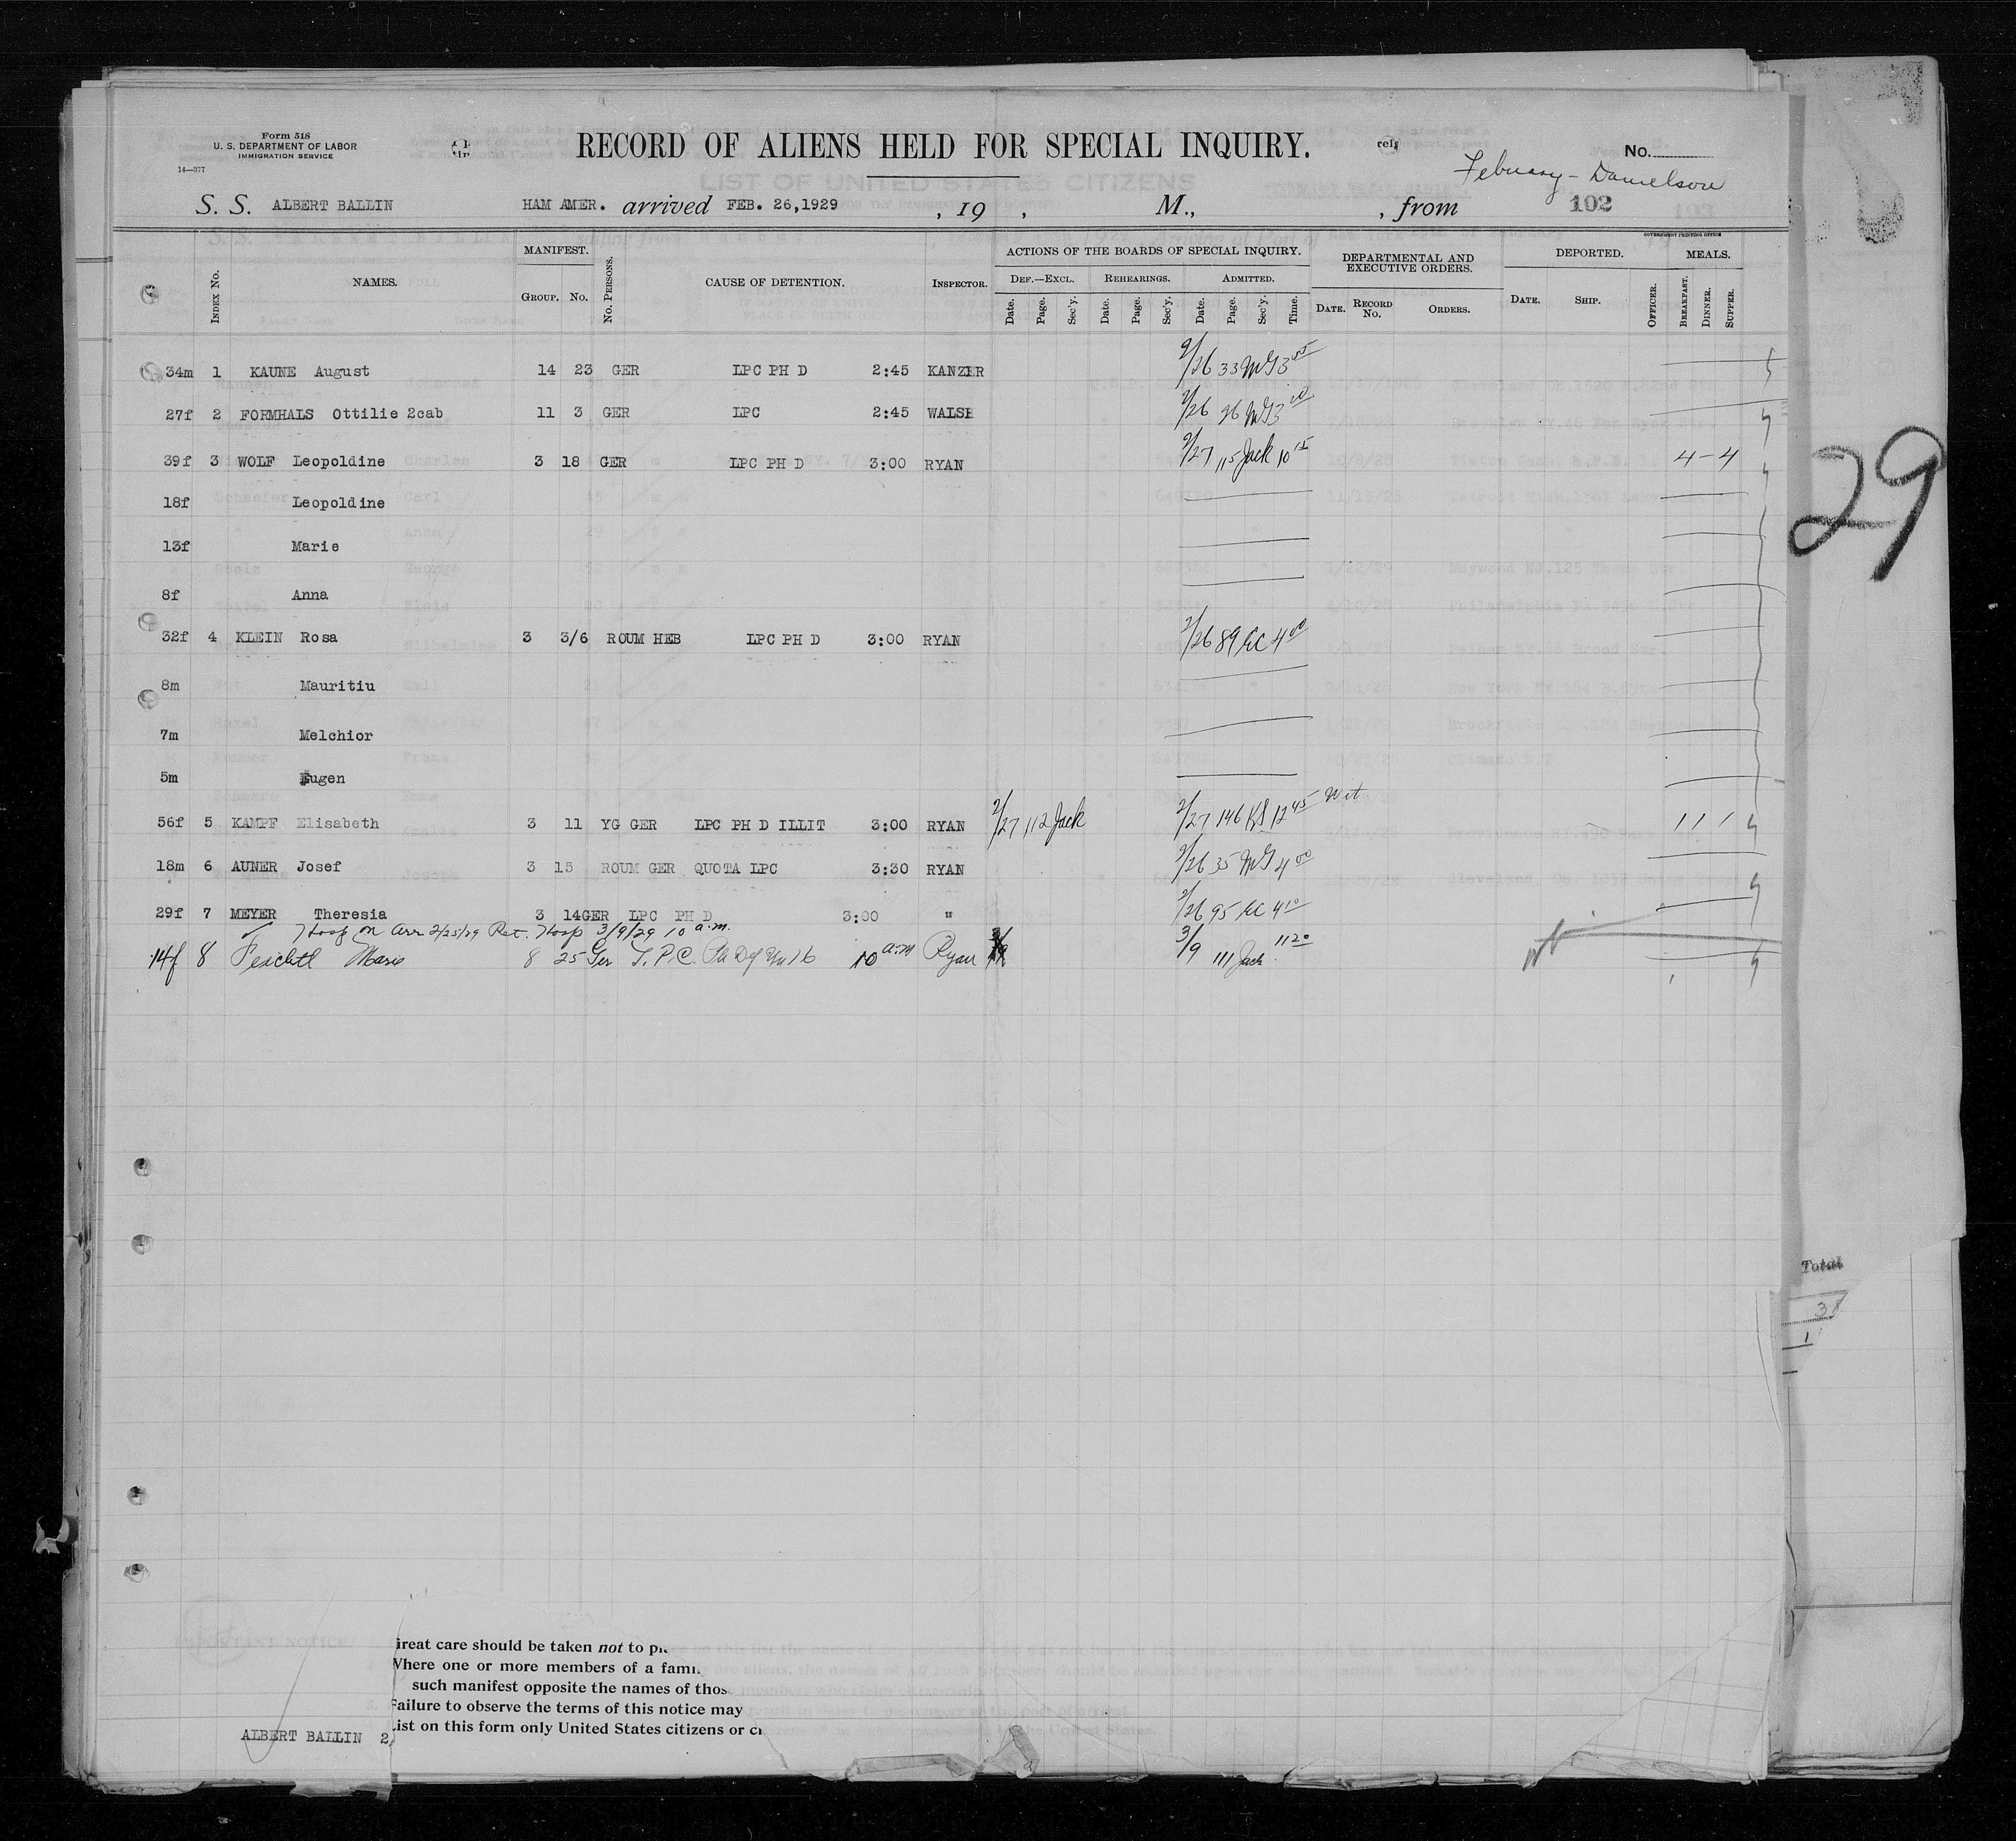 Form 518
U. S. DEPARTMENT OF LABOR
IMMIGRATION SERVICE
14—377
RECORD OF ALIENS HELD FOR SPECIAL INQUIRY.
No.
February - Danielson
S. S. ALBERT BALLIN HAM AMER. arrived FEB. 26,1929 , 19 , M., , from 102
GOVERNMENT PRINTING OFFICE
INDEX No. NAMES. MANIFEST. GROUP. No. No. PERSONS. CAUSE OF DETENTION. INSPECTOR. ACTIONS OF THE BOARDS OF SPECIAL INQUIRY. DEF.—EXCL. Date. Page. Sec'y. REHEARINGS. Date. Page. Sec'y. ADMITTED. Date. Page. Sec'y. Time. DEPARTMENTAL AND EXECUTIVE ORDERS. DATE. RECORD No. ORDERS. DEPORTED. DATE. SHIP. OFFICER. MEALS. BREAKFAST. DINNER. SUPPER.
34m 1 KAUNE August 14 23 GER LPC PH D 2:45 KANZER 2/26 33 McG 3 05
27f 2 FORMHALS Ottilie 2cab 11 3 GER LPC 2:45 WALSH 2/26 36 McG 3 20
39f 3 WOLF Leopoldine 3 18 GER LPC PH D 3:00 RYAN 2/27 115 Jack 10 15 4 - 4
18f Leopoldine
13f Marie
8f Anna
32f 4 KLEIN Rosa 3 3/6 ROUM HEB LPC PH D 3:00 RYAN 2/26 89 EC 4 00
8m Mauritiu
7m Melchior
5m Eugen
56f 5 KAMPF Elisabeth 3 11 YG GER LPC PH D ILLIT 3:00 RYAN 2/27 112 Jack 2/27 146 KS 12 45 Wit 1 1 1
18m 6 AUNER Josef 3 15 ROUM GER QUOTA LPC 3:30 RYAN 2/26 35 McG 4 00
29f 7 MEYER Theresia 3 14 GER LPC PH D 3:00 " 2/26 95 EC 4 10
Hosp on Arr 2/25/29 Ret. Hosp 3/9/29 10 a.m.
14f 8 Marie 8 25 Ger L.P.C. Ph Def 10 a.m Ryan 3/9 111 Jack 11 20 1
29
Total
38
1
Great care should be taken not to
Where one or more members of a
such manifest opposite the names of
Failure to observe the terms of this notice may
List on this form only United States citizens or
ALBERT BALLIN 2